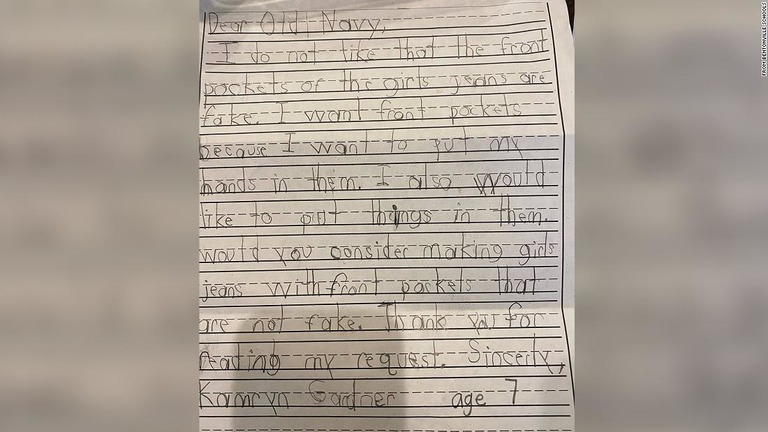 Dear Old Navy,
I do not like that the front
pockets of the girls jeans are
fake. I want front pockets
because I want to put my
hands in them. I also would
like to put things in them.
would you consider making girls
jeans with front pockets that
are not fake. Thank you for
reading my request. Sincerly,
Kamryn Gardner age 7
FROM BENTONVILLE SCHOOLS